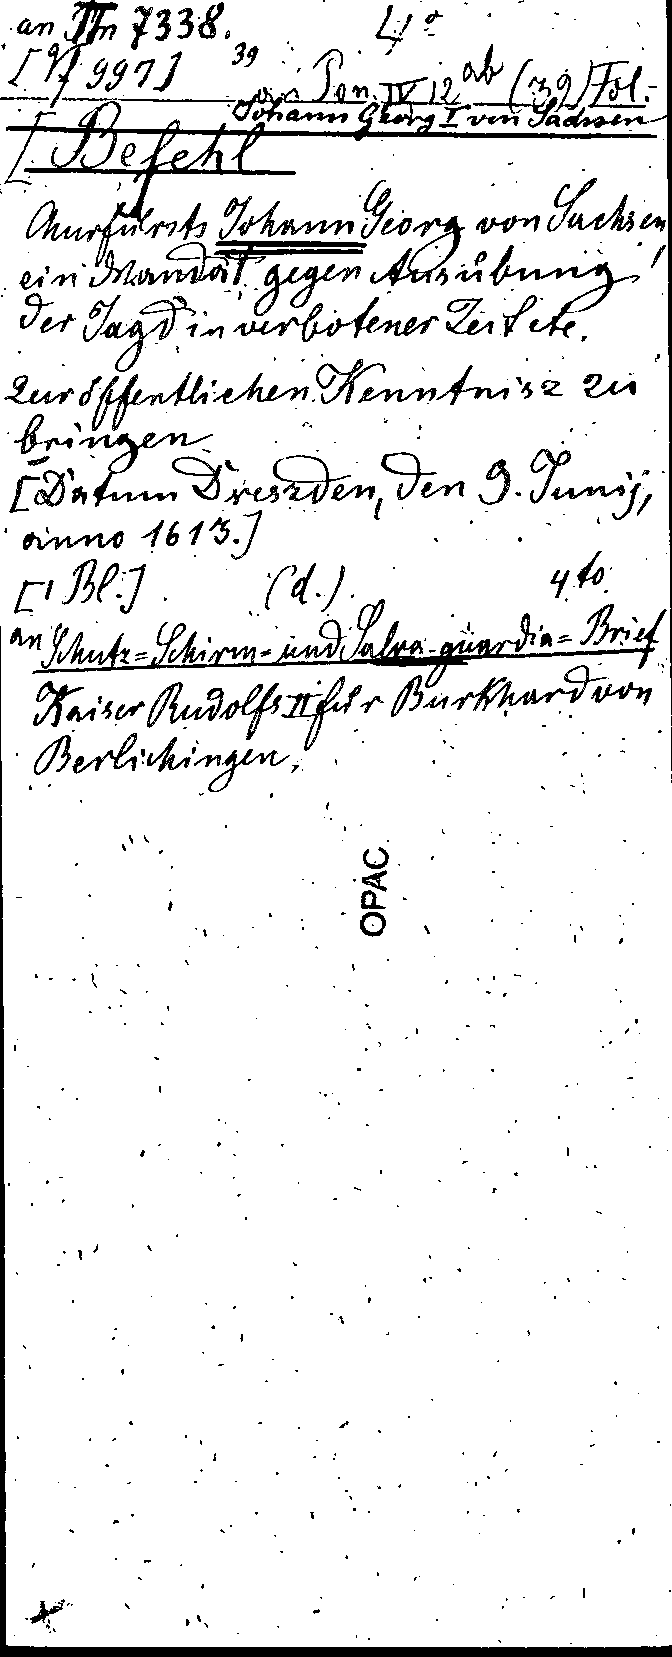 an IIn 7338. 4°
[Yf 997] 39
an Pon. IV 12 ab (39) Fol.
Johann Georg I von Sachsen
[Befehl
Churfürsts Johann Georg von Sachsen,
ein Mandat gegen Ausübung
der Jagd in verbotener Zeit etc.
zur öffentlichen Kenntnisz zu
bringen
[Datum Dreszden, den 9. Junij,
anno 1613.]
[1 Bl.] (d.). 4to
an Schutz=Schirm= und Salva-guardia=Brief
Kaiser Rudolfs II für Burkhard von
Berlichingen.
OPAC